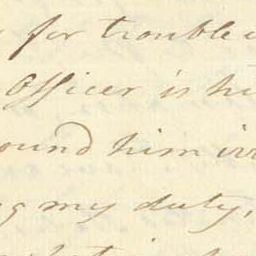 for trouble
Officer is hi
ound him
g my duty,